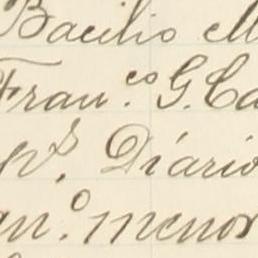 Bacilio M
Fran.co G. Ca
p.s. Diario
an.o menor